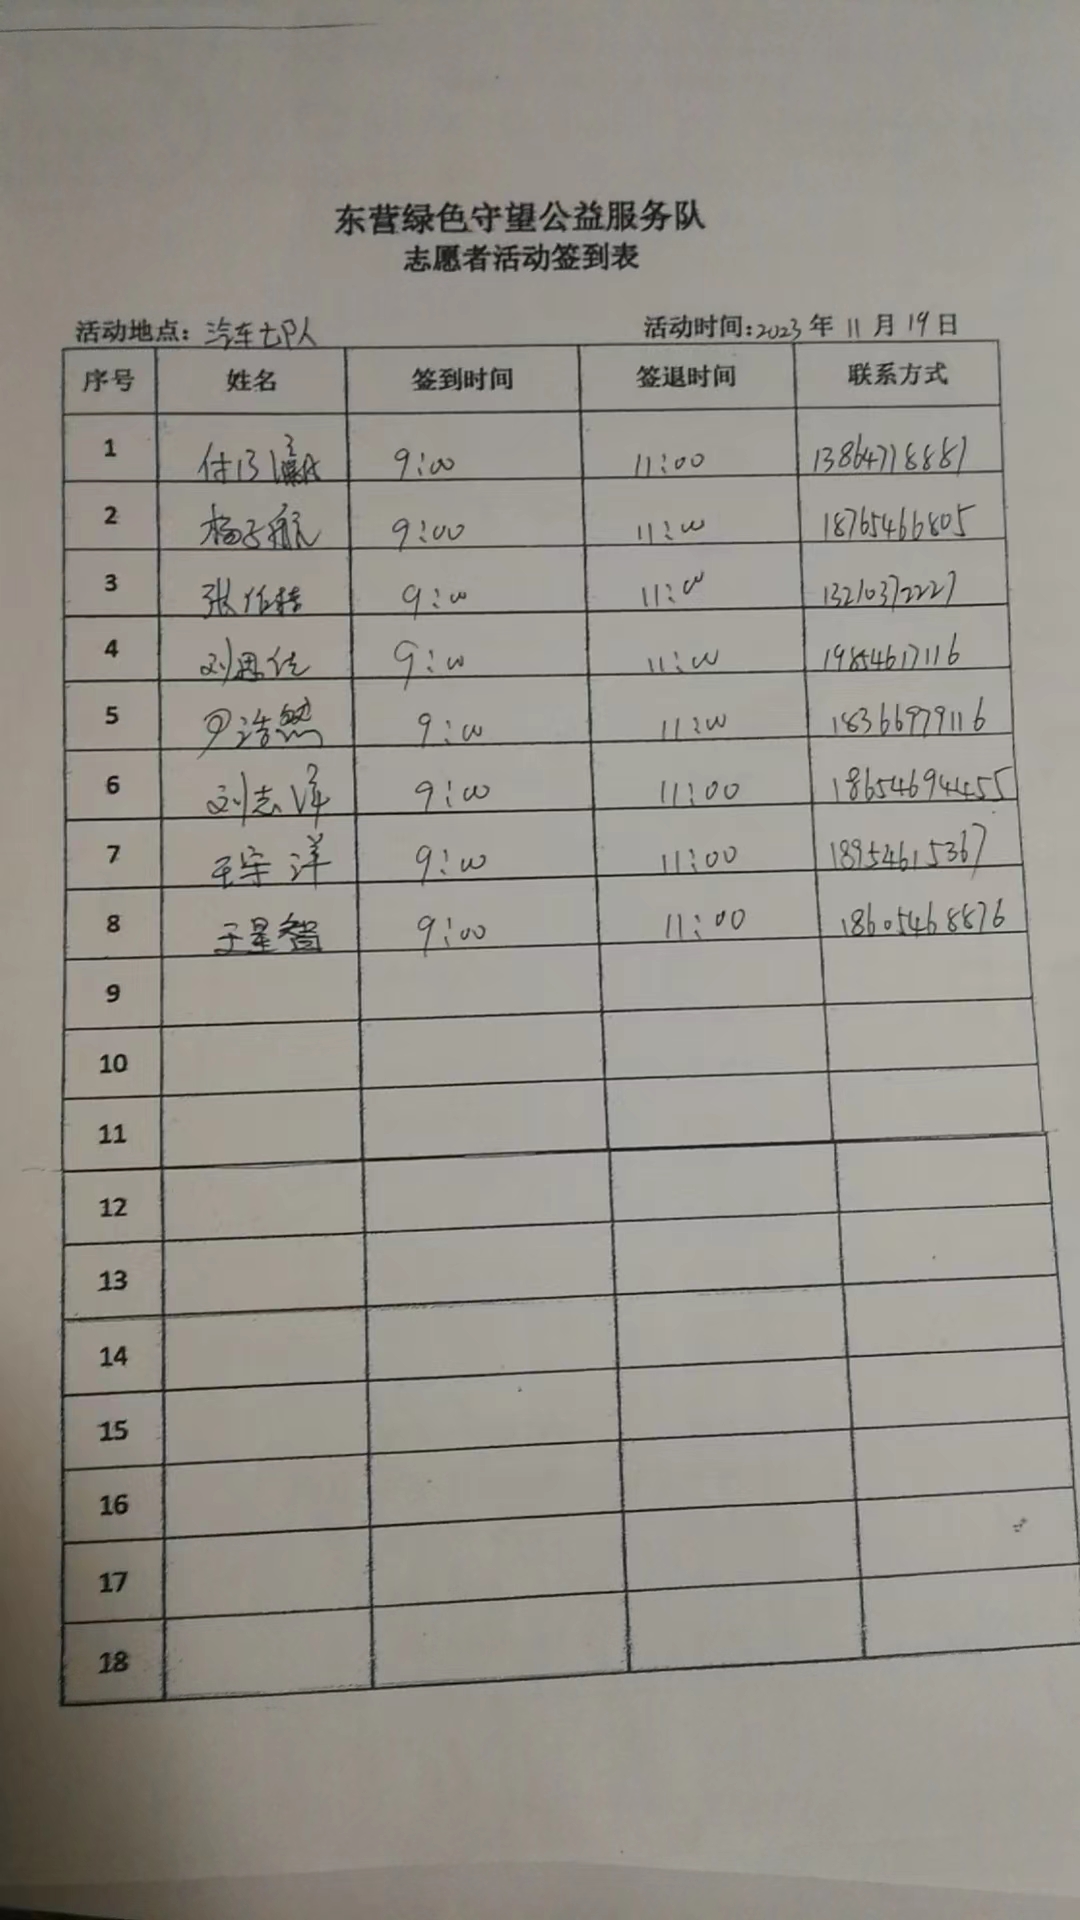 东营绿色守望公益服务队
志愿者活动签到表
活动地点: 汽车七队 活动时间:2023年 11月 19日
序号 姓名 签到时间 签退时间 联系方式
1 9:00 11:00 13864718887
2 杨子航 9:00 11:00 18765466805
3 9:00 11:00 13210372227
4 刘恩佐 9:00 11:00 19854617116
5 尹浩然 9:00 11:00 18366979116
6 刘志泽 9:00 11:00 18654694455
7 王宇洋 9:00 11:00 18954615367
8 于星智 9:00 11:00 18605468876
9
10
11
12
13
14
15
16
17
18